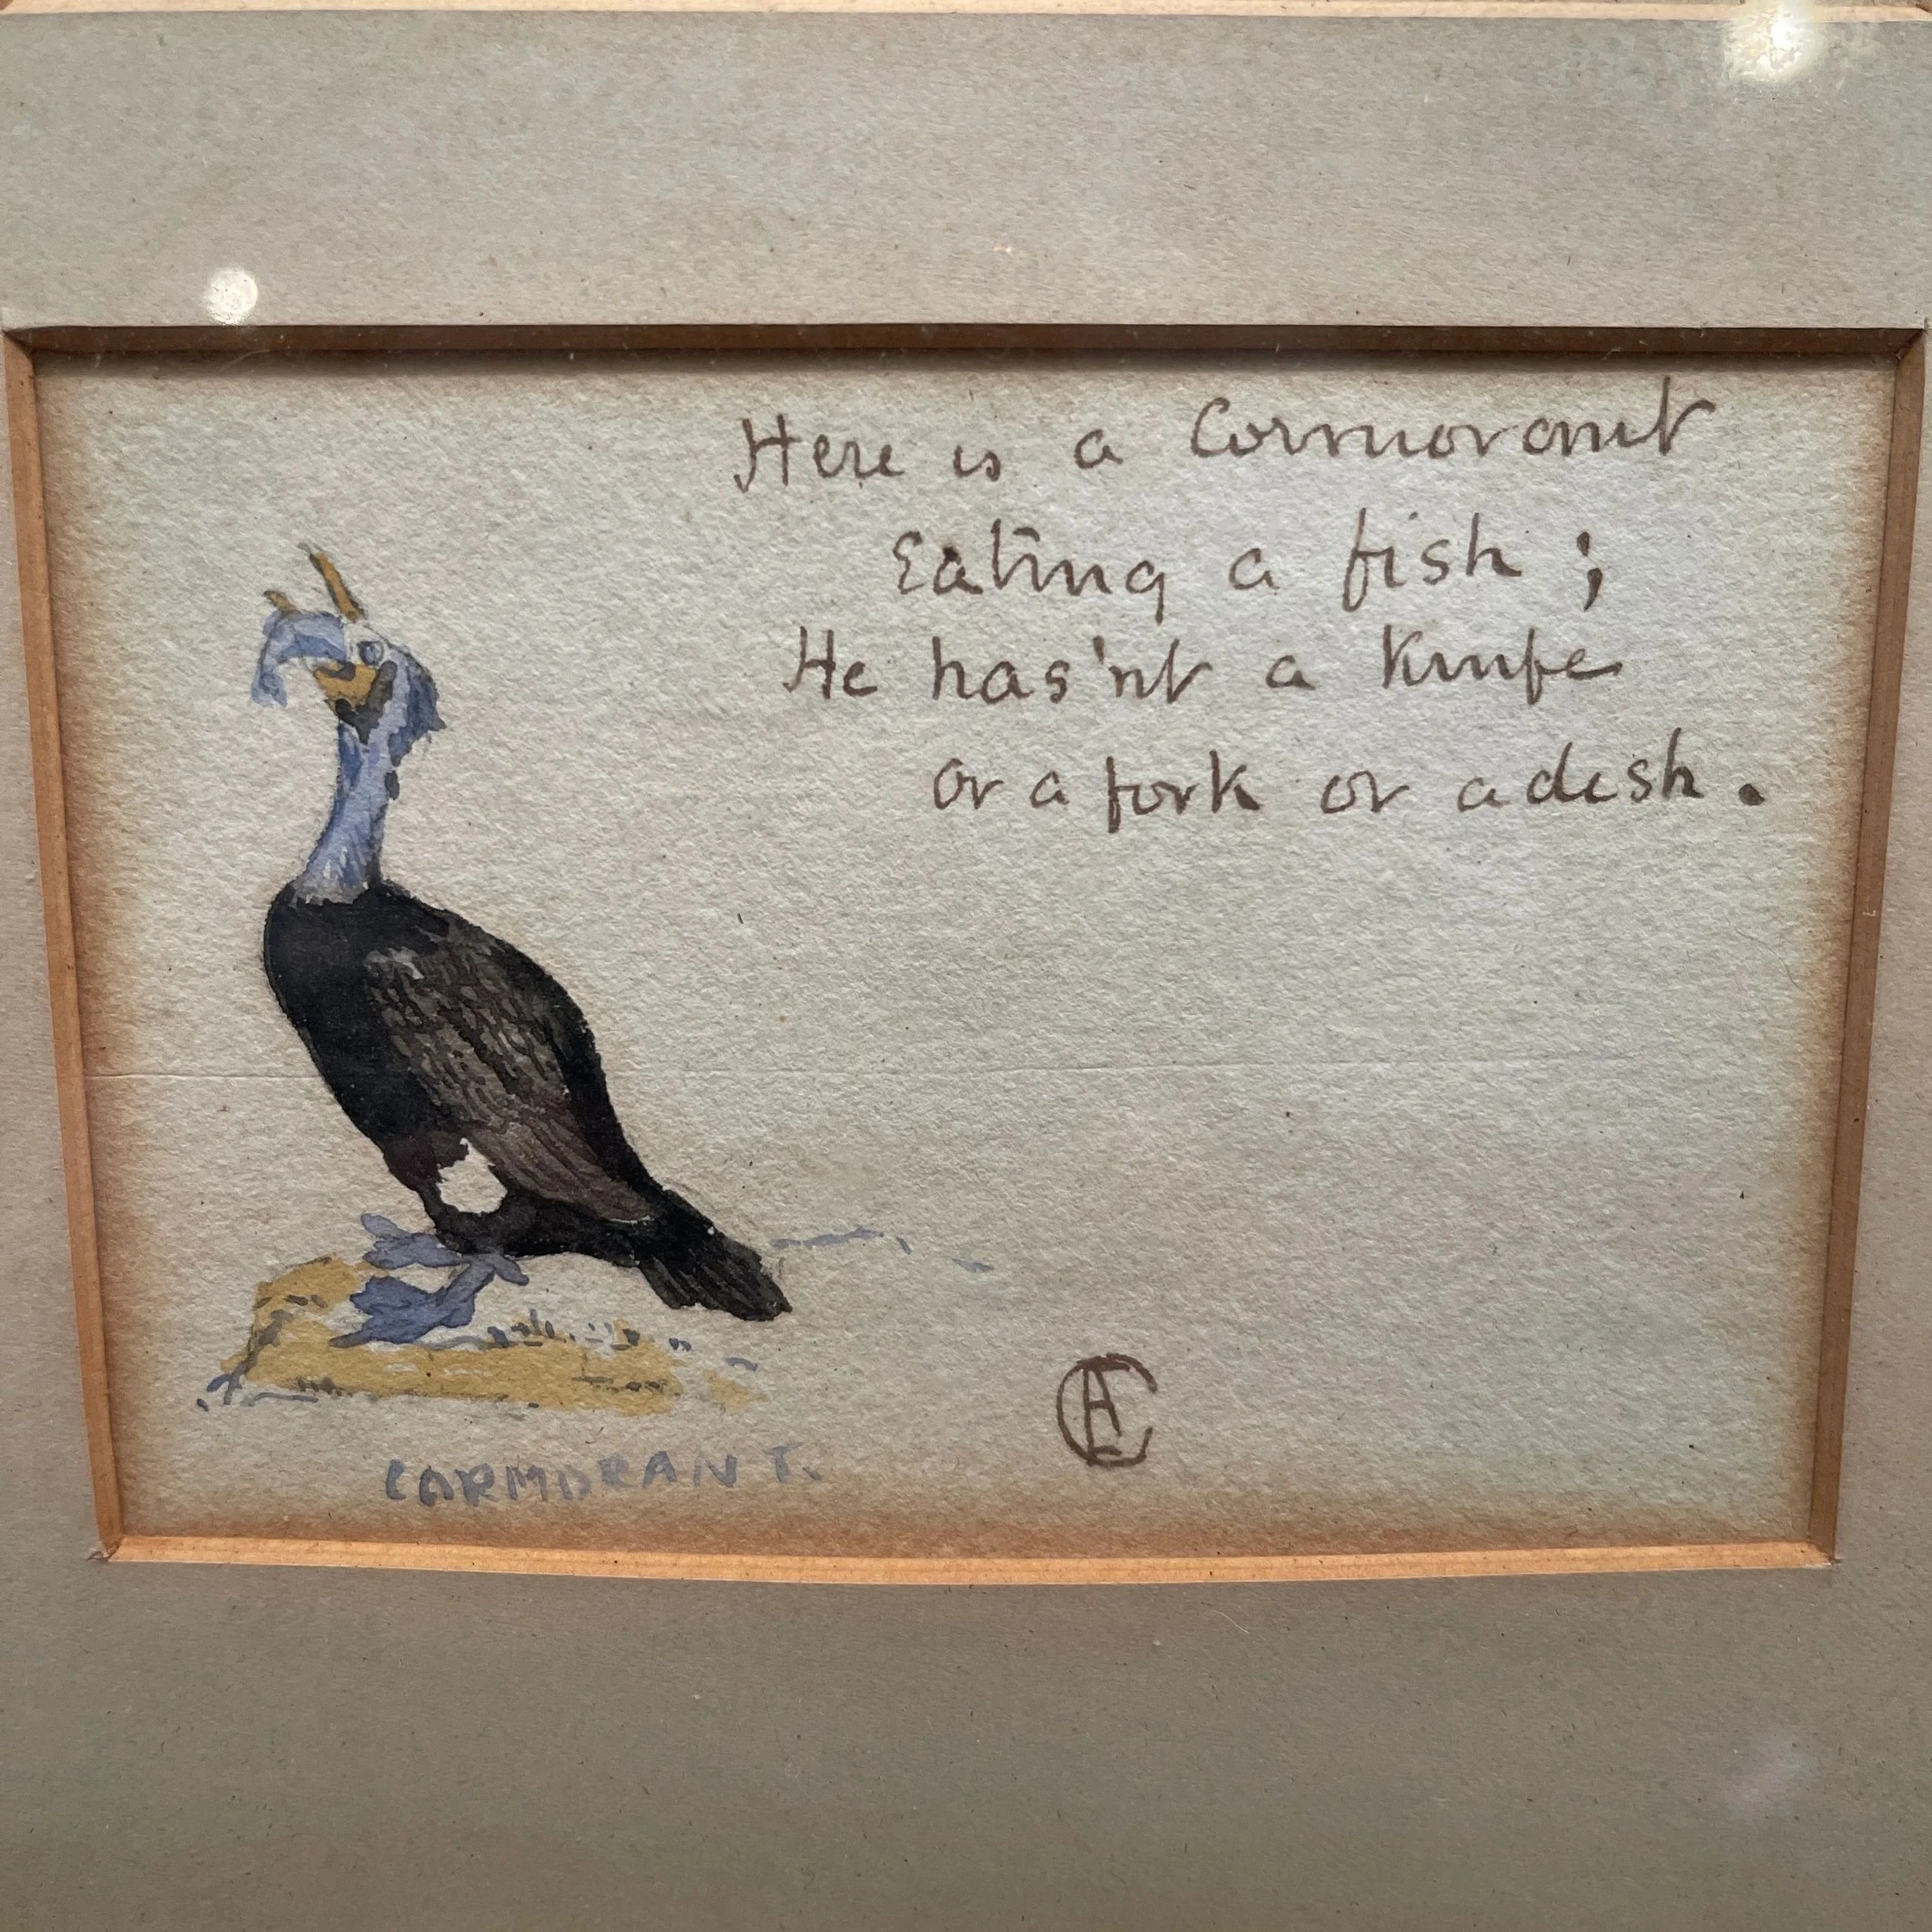 Here is a Cormorant
Eating a fish ;
He has'nt a Knife
or a fork or a dish.
CORMORANT.